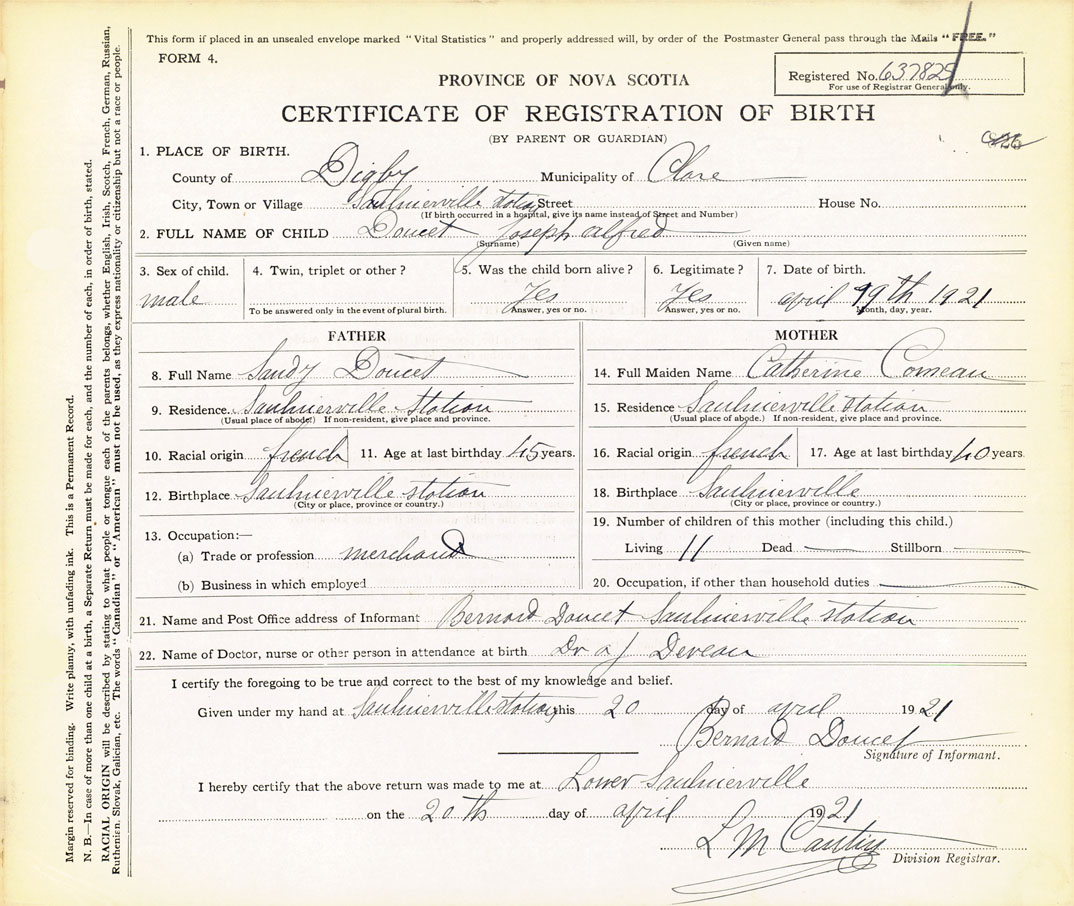 This form if placed in an unsealed envelope marked "Vital Statistics" and properly addressed will, by order of the Postmaster General pass through the Mails "FREE."
FORM 4.
PROVINCE OF NOVA SCOTIA
Registered No. 637825
For use of Registrar General only.
CERTIFICATE OF REGISTRATION OF BIRTH
(BY PARENT OR GUARDIAN)
1. PLACE OF BIRTH.
County of Digby Municipality of Clare
City, Town or Village Saulnierville Station Street House No.
(If birth occurred in a hospital, give its name instead of Street and Number)
2. FULL NAME OF CHILD Doucet Joseph alfred
(Surname) (Given name)
3. Sex of child. 4. Twin, triplet or other? 5. Was the child born alive? 6. Legitimate? 7. Date of birth.
male Yes Yes april 19th 1921
To be answered only in the event of plural birth. Answer, yes or no. Answer, yes or no. Month, day, year.
FATHER
8. Full Name Sandy Doucet
9. Residence. Saulnierville Station
(Usual place of abode.) If non-resident, give place and province.
10. Racial origin french 11. Age at last birthday 45 years.
12. Birthplace Saulnierville station
(City or place, province or country.)
13. Occupation:—
(a) Trade or profession merchant
(b) Business in which employed
MOTHER
14. Full Maiden Name Catherine Comeau
15. Residence Saulnierville Station
(Usual place of abode.) If non-resident, give place and province.
16. Racial origin french 17. Age at last birthday 40 years.
18. Birthplace Saulnierville
(City or place, province or country.)
19. Number of children of this mother (including this child.)
Living 11 Dead Stillborn
20. Occupation, if other than household duties
21. Name and Post Office address of Informant Bernard Doucet Saulnierville station
22. Name of Doctor, nurse or other person in attendance at birth Dr a J Deveau
I certify the foregoing to be true and correct to the best of my knowledge and belief.
Given under my hand at Saulnierville station this 20 day of april 1921
Bernard Doucet
Signature of Informant.
I hereby certify that the above return was made to me at Lower Saulnierville
on the 20th day of april 1921
L M
Division Registrar.
Margin reserved for binding. Write plainly, with unfading ink. This is a Permanent Record.
N. B.—In case of more than one child at a birth, a Separate Return must be made for each, and the number of each, in order of birth, stated.
RACIAL ORIGIN will be described by stating to what people or tongue each of the parents belongs, whether English, Irish, Scotch, French, German, Russian,
Ruthenian, Slovak, Galician, etc. The words "Canadian" or "American" must not be used, as they express nationality or citizenship but not a race or people.